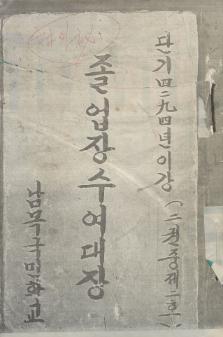 단기四二九四년이강(二권중제二호)
졸업장수여대장
남북국민학교